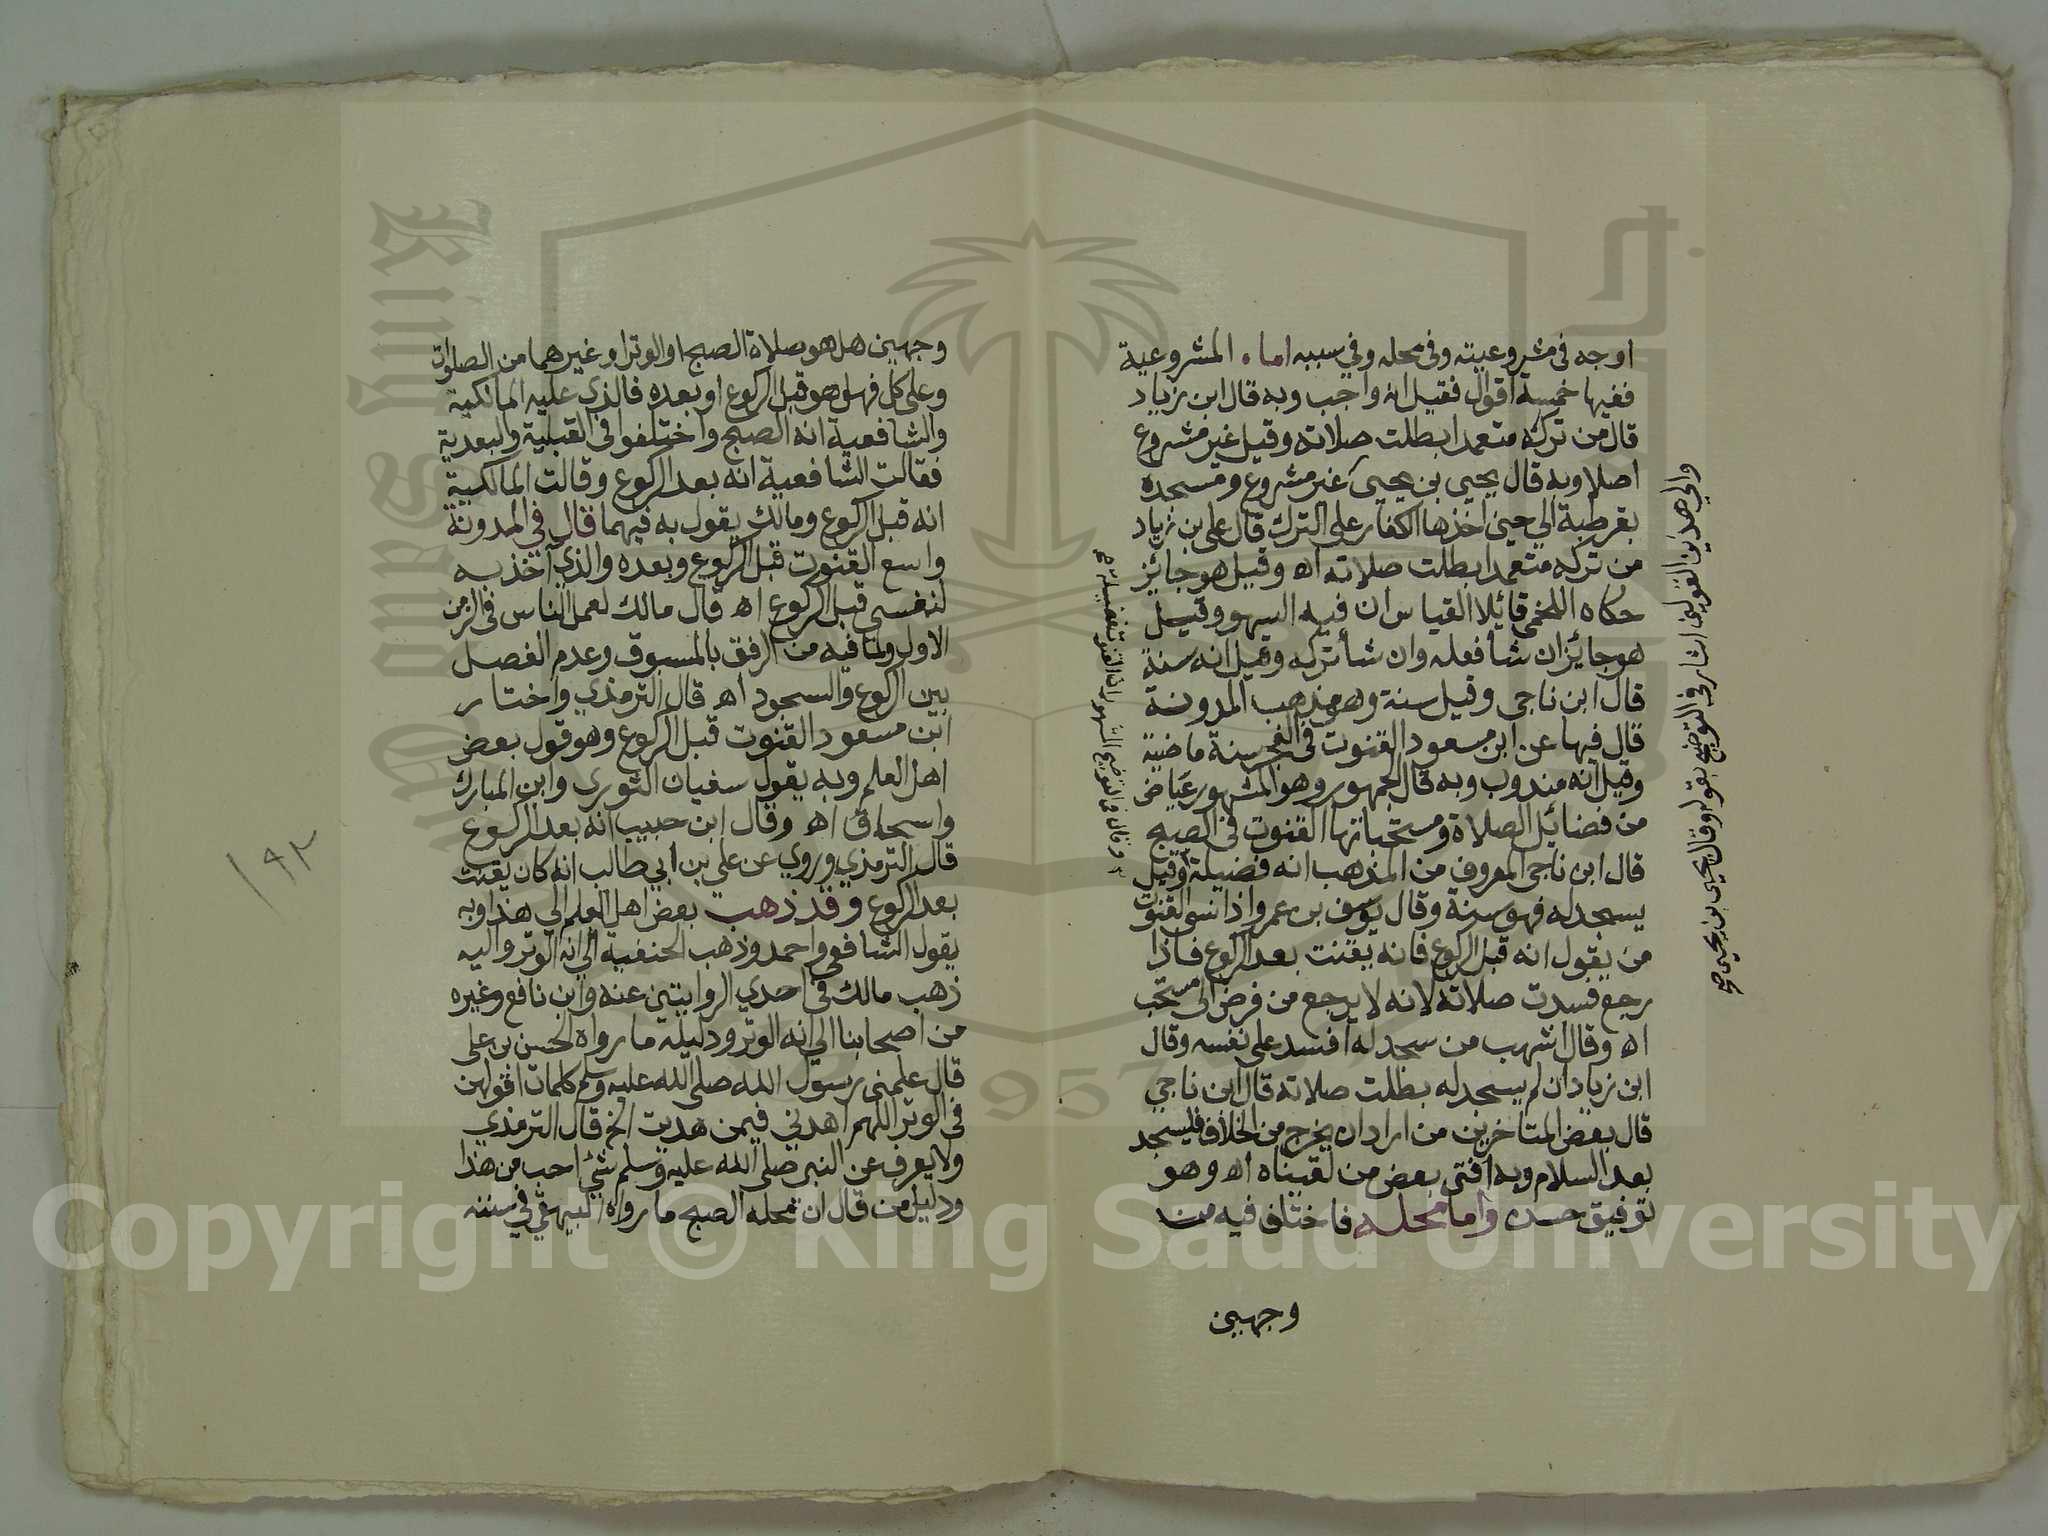 اوجه في مشروعيته وفي محله وفي سببه اما المشروعية
ففيها خمسة اقوال فقيل انه واجب وبه قال ابن زياد
قال من تركه متعمدا بطلت صلاته وقيل غير مشروع
اصلا وبه قال يحيى بن يحيى غير مشروع ومسجده
بقرطبة الي حين اخذها الكفار على الترك قال على بن زياد
من تركه متعمدا بطلت صلاته اه وقيل هو جائز
حكاه اللخمي قائلا القياس ان فيه السهو وقيل
هو جائز ان شا فعله وان شا تركه وقيل انه سنة
قال ابن ناجى وقيل سنة وهو مذهب المدونة
قال فيها عن ابن مسعود القنوت في الفجر سنة ماضية
وقيل انه مندوب وبه قال الجمهور وهو المشهور عياض
من فضائل الصلاة ومستحباتها القنوت في الصبح
قال ابن ناجى المعروف من المذهب انه فضيلة وقيل
يسجد له فهو سنة وقال يوسف بن عمر واذا نسى القنوت
من يقول انه قبل الركوع فانه يقنت بعد الركوع فاذا
رجع فسدت صلاته لانه لا يرجع من فرض الى مستحب
اه وقال اشهب من سجد له افسد على نفسه وقال
ابن زياد ان لم يسجد له بطلت صلاته قال ابن ناجي
قال بعض المتاخرين من اراد ان يخرج من الخلاف فليسجد
بعد السلام وبه افتى بعض من لقيناه اه وهو
توفيق حسن واما محله فاختلف فيه من
وجهين
والي هذين القولين اشار في التوضيح بقوله وقال يحيى بن يحيى صح
وقال في التوضيح المشهور ان القنوت فضيلة صح
وجهين هل هو صلاة الصبح او الوتر او غيرهما من الصلوات
وعلى كل فهل هو قبل الركوع او بعده فالذي عليه المالكية
والشافعية انه الصبح واختلفوا في القبلية والبعدية
فقالت الشافعية انه بعد الركوع وقالت المالكية
انه قبل الركوع ومالك يقول به فيهما قال في المدونة
واسع القنوت قبل الركوع وبعده والذي آخذ به
لنفسي قبل الركوع اه قال مالك لعمل الناس في الزمن
الاول ولما فيه من الرفق بالمسبوق وعدم الفصل
بين الركوع والسجود اه قال الترمذي واختار
ابن مسعود القنوت قبل الركوع وهو قول بعض
اهل العلم وبه يقول سفيان الثوري وابن المبارك
واسحاق اه وقال ابن حبيب انه بعد الركوع
قال الترمذي وروي عن علي بن ابي طالب انه كان يقنت
بعد الركوع وقد ذهب بعض اهل العلم الي هذا وبه
يقول الشافعي واحمد وذهب الحنفية الي انه الوتر واليه
ذهب مالك في احدي الروايتين عنه وابن نافع وغيره
من اصحابنا الي انه الوتر ودليله ما رواه الحسن بن على
قال علمني رسول الله صلى الله عليه وسلم كلمات اقولهن
في الوتر اللهم اهدني فيمن هديت الخ قال الترمذي
ولا يعرف عن النبي صلى الله عليه وسلم شئ احب من هذا
ودليل من قال ان محله الصبح ما رواه البيهقي في سننه
١٩٢
King Saud University
1957
Copyright © King Saud University